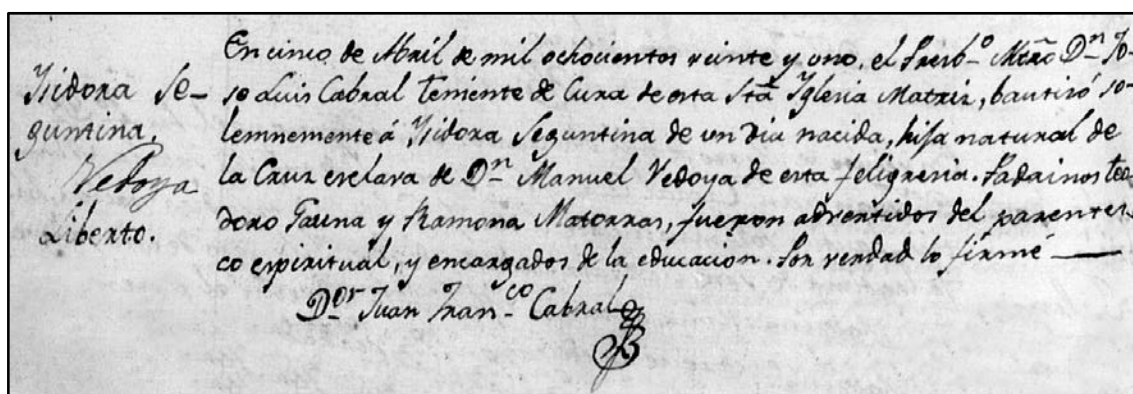 Isidora Se-
guntina,
Vedoya
Liberto.
En cinco de Abril de mil ochocientos veinte y uno. el Presb.º Mtrõ D.n Jo-
se Luis Cabral Teniente de Cura de esta Sta Yglesia Matriz, bautizó so-
lemnemente á Ysidora Seguntina de un dia nacida, hija natural de
la Cruz esclava de D.n Manuel Vedoya de esta feligresia. Padrinos Teo-
doro Gauna y Ramona Matorras, fueron advertidos del parentes-
co espiritual, y encargados de la educacion. Por verdad lo firmé —
D.or Juan Fran.co Cabral